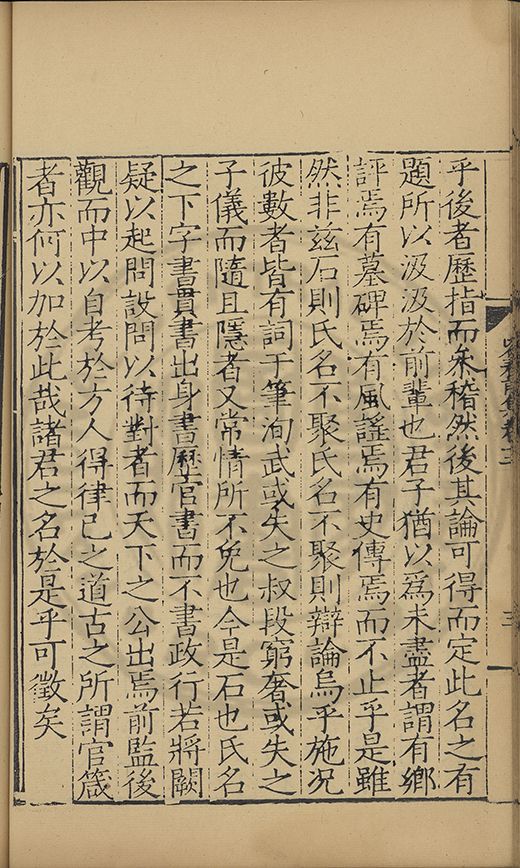 乎後者歷指而矣稽然後其論可得而定此名之有
題所以汲汲於前輩也君子猶以爲未盡者謂有鄉
評焉有墓碑焉有風謠焉有史傳焉而不止乎是雖
然非茲石則氏名不聚氏名不聚則辯論烏乎施况
彼數者皆有詞于筆洵武或失之叔段窮奢或失之
子儀而隨且隱者又常情所不免也今是石也氏名
之下字書貫書出身書歷官書而不書政行若將闕
疑以起問設問以待對者而天下之公出焉前監後
觀而中以自考於方人得律己之道古之所謂官箴
者亦何以加於此哉諸君之名於是乎可徵矣
三